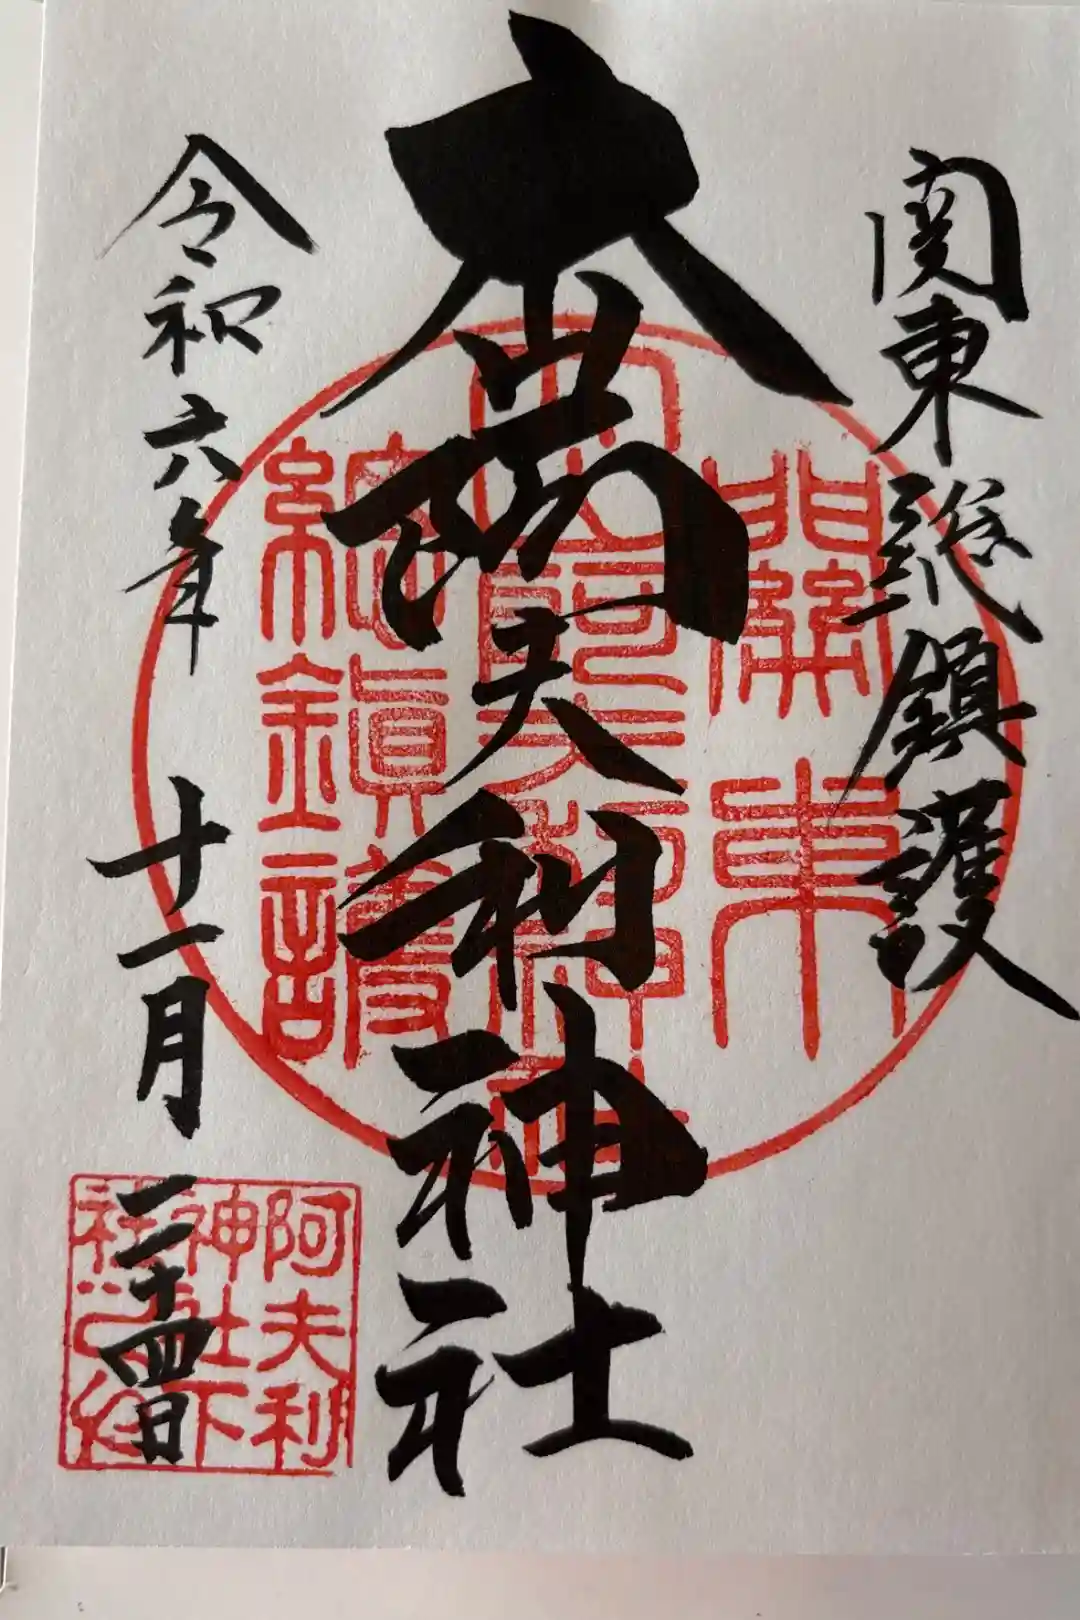 関東総鎮護
大山阿夫利神社
令和六年
十一月二十四日
關東
總鎮護
阿夫利
神社下
社之印